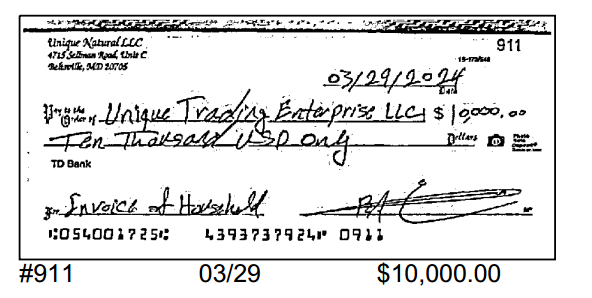 Unique Natural LLC
911
4715 Sellman Road, Unit C
Beltsville, MD 20705
15-173/540
03/29/2024
Date
Pay to the
Order of Unique Trading Enterprise LLC $ 10,000.00
Ten Thousand USD Only Dollars
TD Bank
For Invoice of Household
⑆054001725⑆ 4393737924⑈ 0911
#911 03/29 $10,000.00